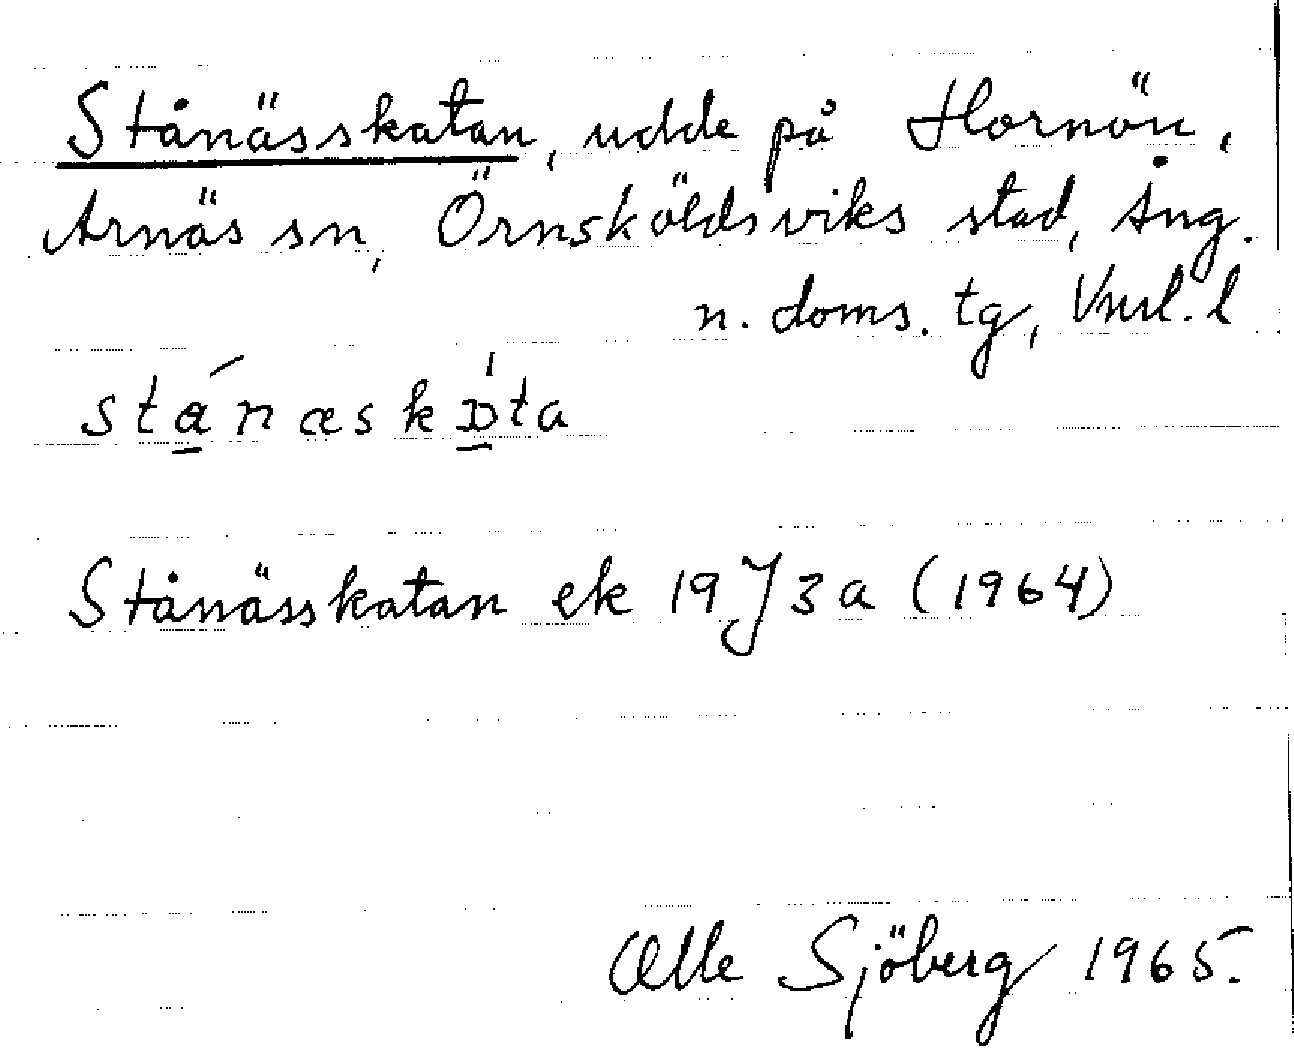 Stånässkatan, udde på Hornön,
Arnäs sn, Örnsköldsviks stad, Ång.
n. doms. tg, Vnrl. l
stánæskɒ́ta
Stånässkatan ek 19 J 3 a (1964)
Olle Sjöberg 1965.